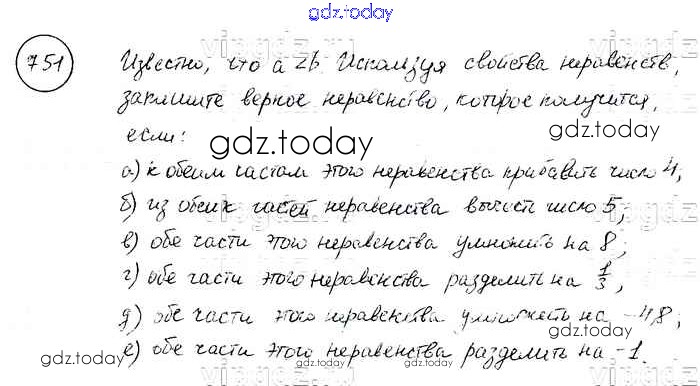 gdz.today
751
Известно, что a < b. Используя свойства неравенств,
запишите верное неравенство, которое получится,
если:
gdz.today
gdz.today
а) к обеим частям этого неравенства прибавить число 4;
б) из обеих частей неравенства вычесть число 5;
в) обе части этого неравенства умножить на 8;
г) обе части этого неравенства разделить на 1/3;
д) обе части этого неравенства умножить на -4,8;
gdz.today
gdz.today
е) обе части этого неравенства разделить на -1.